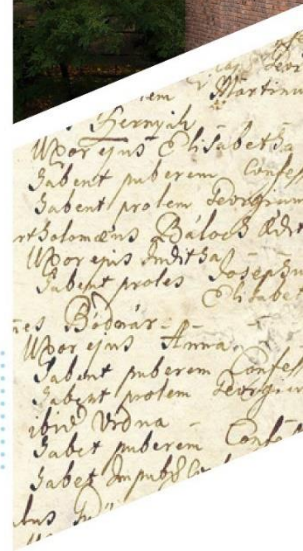 Martinu
Hernyak
Uxor ejus Elisabetha
Habent puberem Confes
Habent prolem Georgium
rtholomæus Baloch Ædit
Uxor ejus Juditha
Habent proles Josephu
Elisabet
nes Bodnár
Uxor ejus Anna
Habent puberem Confes
Habent prolem Georgiu
ibid Vrona
Habet puberem Conf
Habet Impub